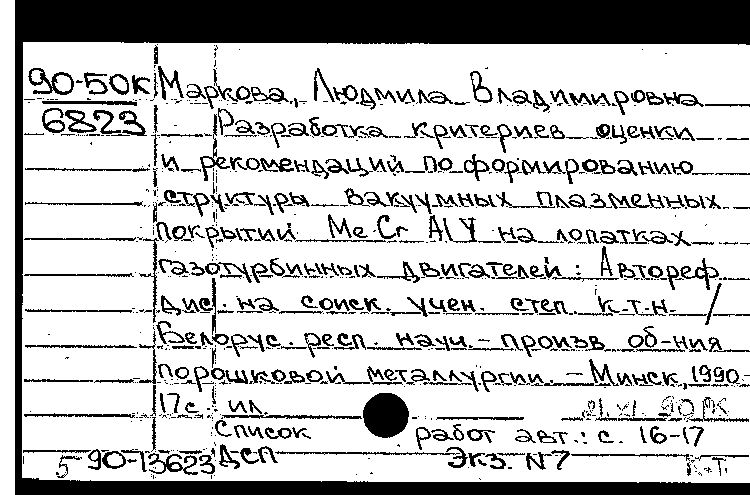 90-50к Маркова, Людмила Владимировна
6823 Разработка критериев оценки
и рекомендаций по формированию
структуры вакуумных плазменных
покрытий Me Cr Al Y на лопатках
газотурбинных двигателей : Автореф.
дис. на соиск. учен. степ. к.т.н. /
Белорус. респ. науч.- произв об-ния
порошковой металлургии. - Минск, 1990.-
17с. ил. 21.XI. 90
Список работ авт.: с. 16-17
5-90-13623 ДСП Экз. N7 К.Т.